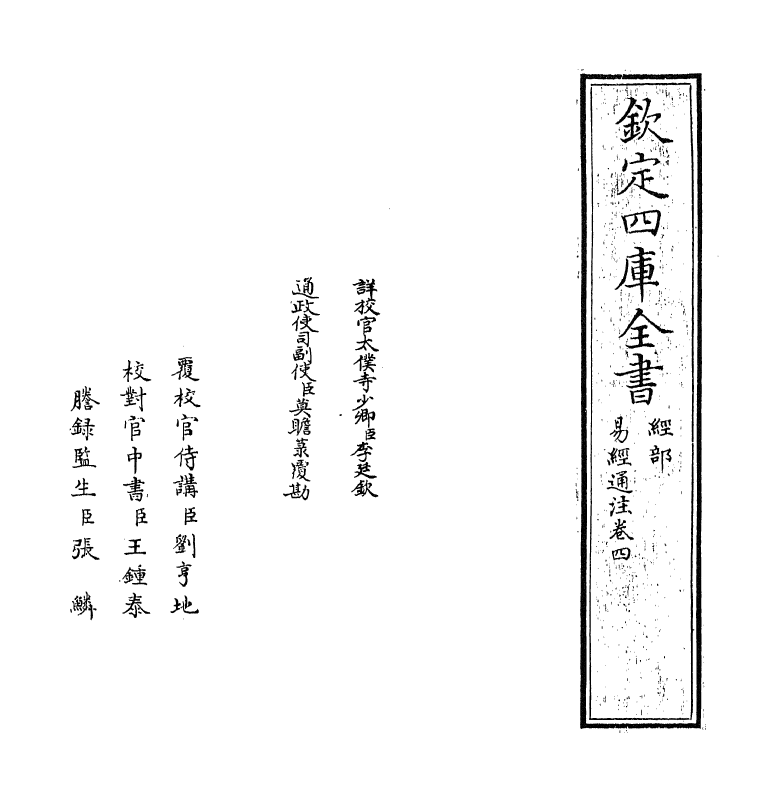 欽定四庫全書
經部
易經通注卷四
詳挍官太僕寺少卿臣李廷欽
通政使司副使臣莫瞻菉覆勘
覆校官侍講臣劉亨地
校對官中書臣王鍾泰
謄録監生臣張鱗